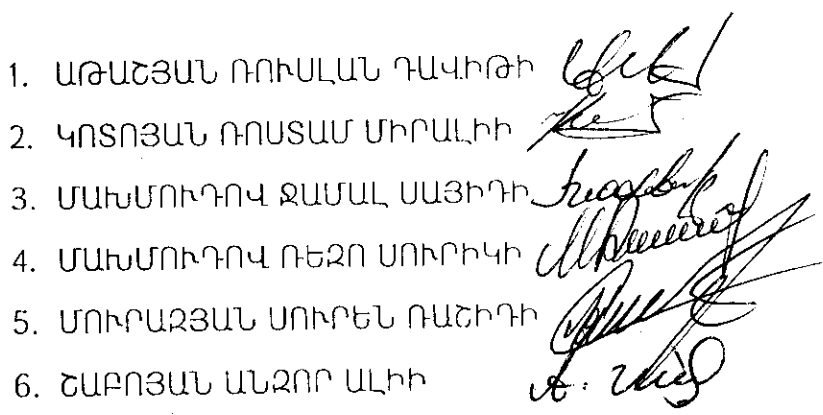 1. ԱԹԱՇՅԱՆ ՌՈՒՍԼԱՆ ԴԱՎԻԹԻ
2. ԿՈՏՈՅԱՆ ՌՈՍՏԱՄ ՄԻՐԱԼԻԻ
3. ՄԱԽՄՈՒԴՈՎ ՋԱՄԱԼ ՍԱՅԻԴԻ
4. ՄԱԽՄՈՒԴՈՎ ՌԵԶՈ ՍՈՒՐԻԿԻ
5. ՄՈՒՐԱԶՅԱՆ ՍՈՒՐԵՆ ՌԱՇԻԴԻ
6. ՇԱԲՈՅԱՆ ԱՆԶՈՐ ԱԼԻԻ